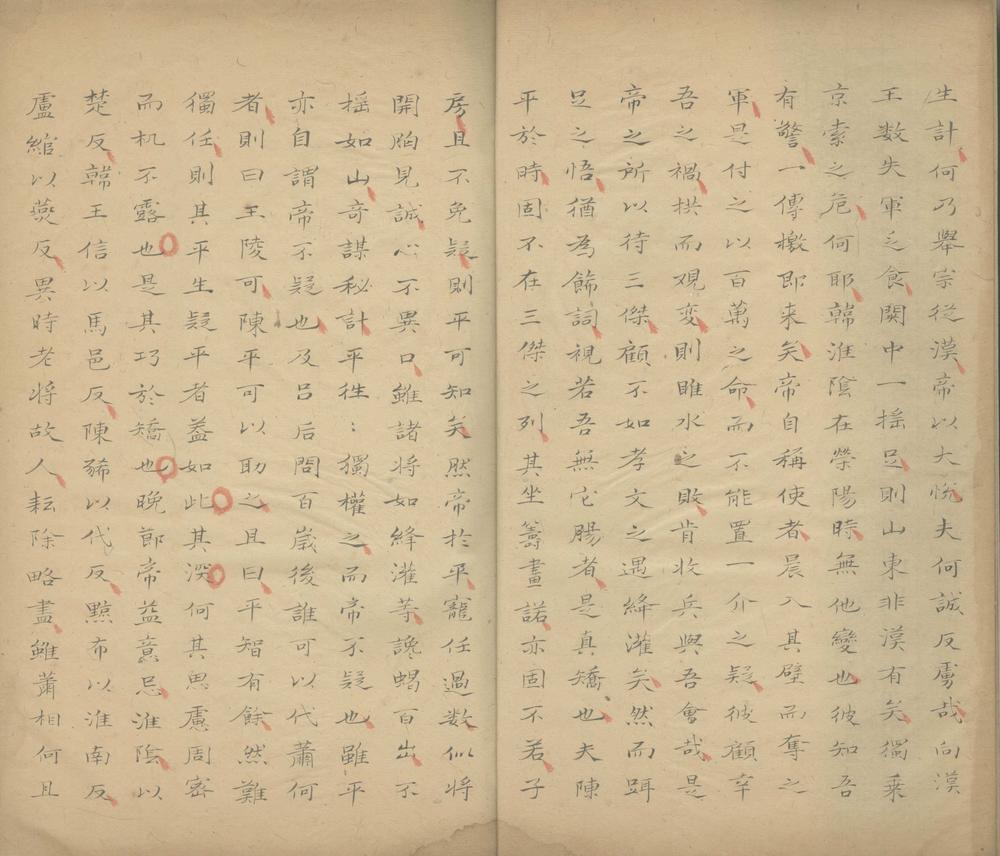 生計何乃舉宗從漢帝以大悅夫何誠反虜哉向漢
王数失軍乏食関中一揺足則山東非漢有矣獨乗
京索之危何耶韓淮陰在滎陽時無他變也彼知吾
有警一傳檄即来矣帝自稱使者晨入其壁而奪之
軍是付之以百萬之命而不能置一介之疑彼顧幸
吾之禍拱而观变則睢水之敗肯收兵與吾會哉是
帝之所以待三傑顧不如孝文之遇絳灌矣然而踀
足之悟猶為飾詞視若吾無它腸者是真矯也夫陳
平於時固不在三傑之列其坐籌畫諾亦固不若子
房且不免疑則平可知矣然帝於平寵任過数似将
開胸見誠心不異口雖諸将如絳灌等讒蝎百出不
揺如山竒謀秘計平徃〻獨權之而帝不疑也雖平
亦自謂帝不疑也及吕后問百嵗後誰可以代蕭何
者則曰王陵可陳平可以助之且曰平智有餘然難
獨任則其平生疑平者葢如此其深何其思慮周密
而机不露也是其巧於矯也晚節帝益意忌淮陰以
楚反韓王信以馬邑反陳豨以代反黥布以淮南反
盧綰以燕反異時老将故人耘除略盡雖蕭相何且